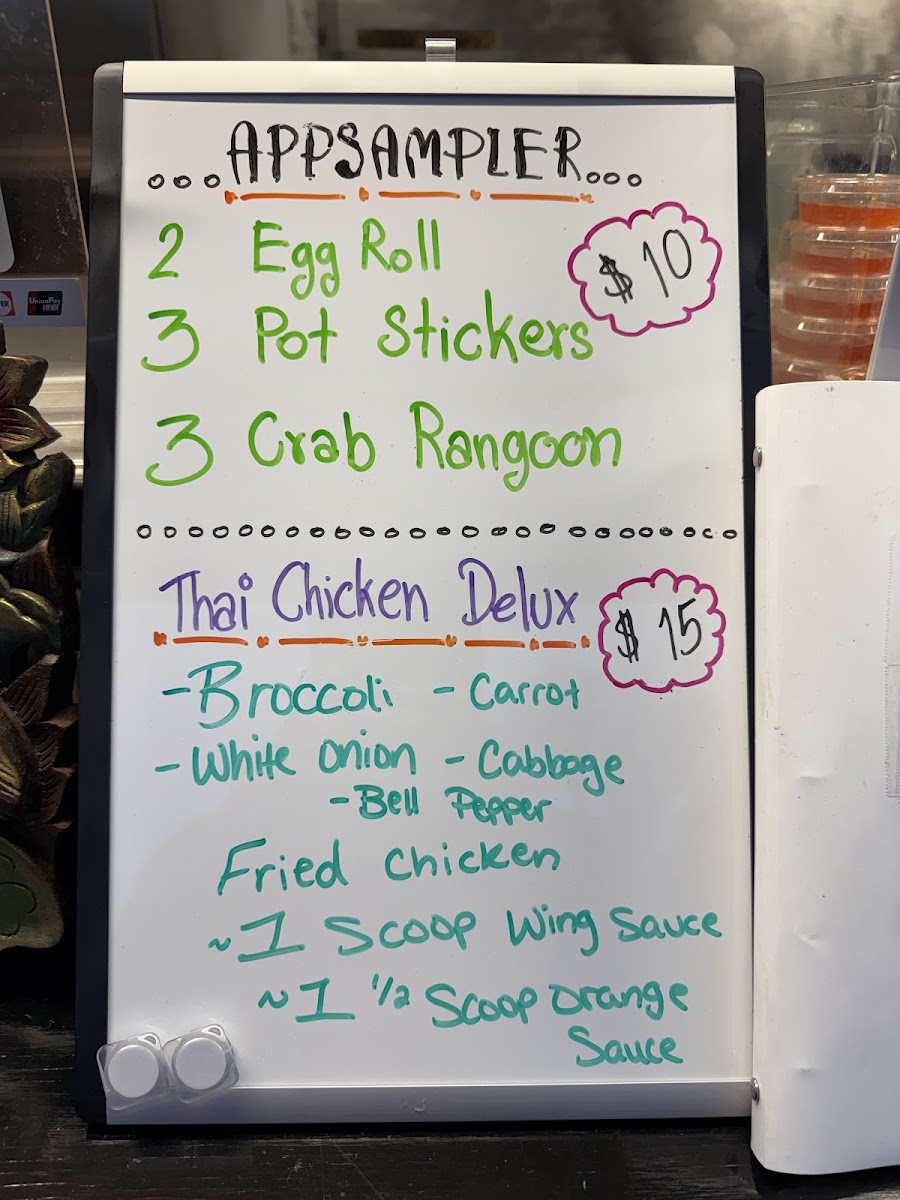 ...APPSAMPLER...
2 Egg Roll
$10
3 Pot Stickers
3 Crab Rangoon
Thai Chicken Delux
$15
-Broccoli - Carrot
-White onion - Cabbage
-Bell Pepper
Fried Chicken
~1 Scoop Wing Sauce
~1 1/2 Scoop Orange
Sauce
UnionPay